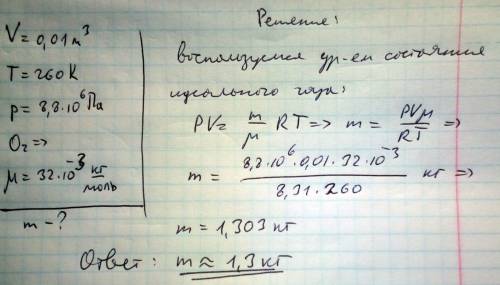 V = 0,01 м³
T = 260 К
p = 8,8·10⁶ Па
O₂ =>
μ = 32·10⁻³ кг/моль
m - ?
Решение:
воспользуемся ур-ем состояния
идеального газа:
PV = m/μ RT => m = PVμ/RT =>
m = 8,8·10⁶·0,01·32·10⁻³/8,31·260 кг =>
m = 1,303 кг
Ответ: m ≈ 1,3 кг